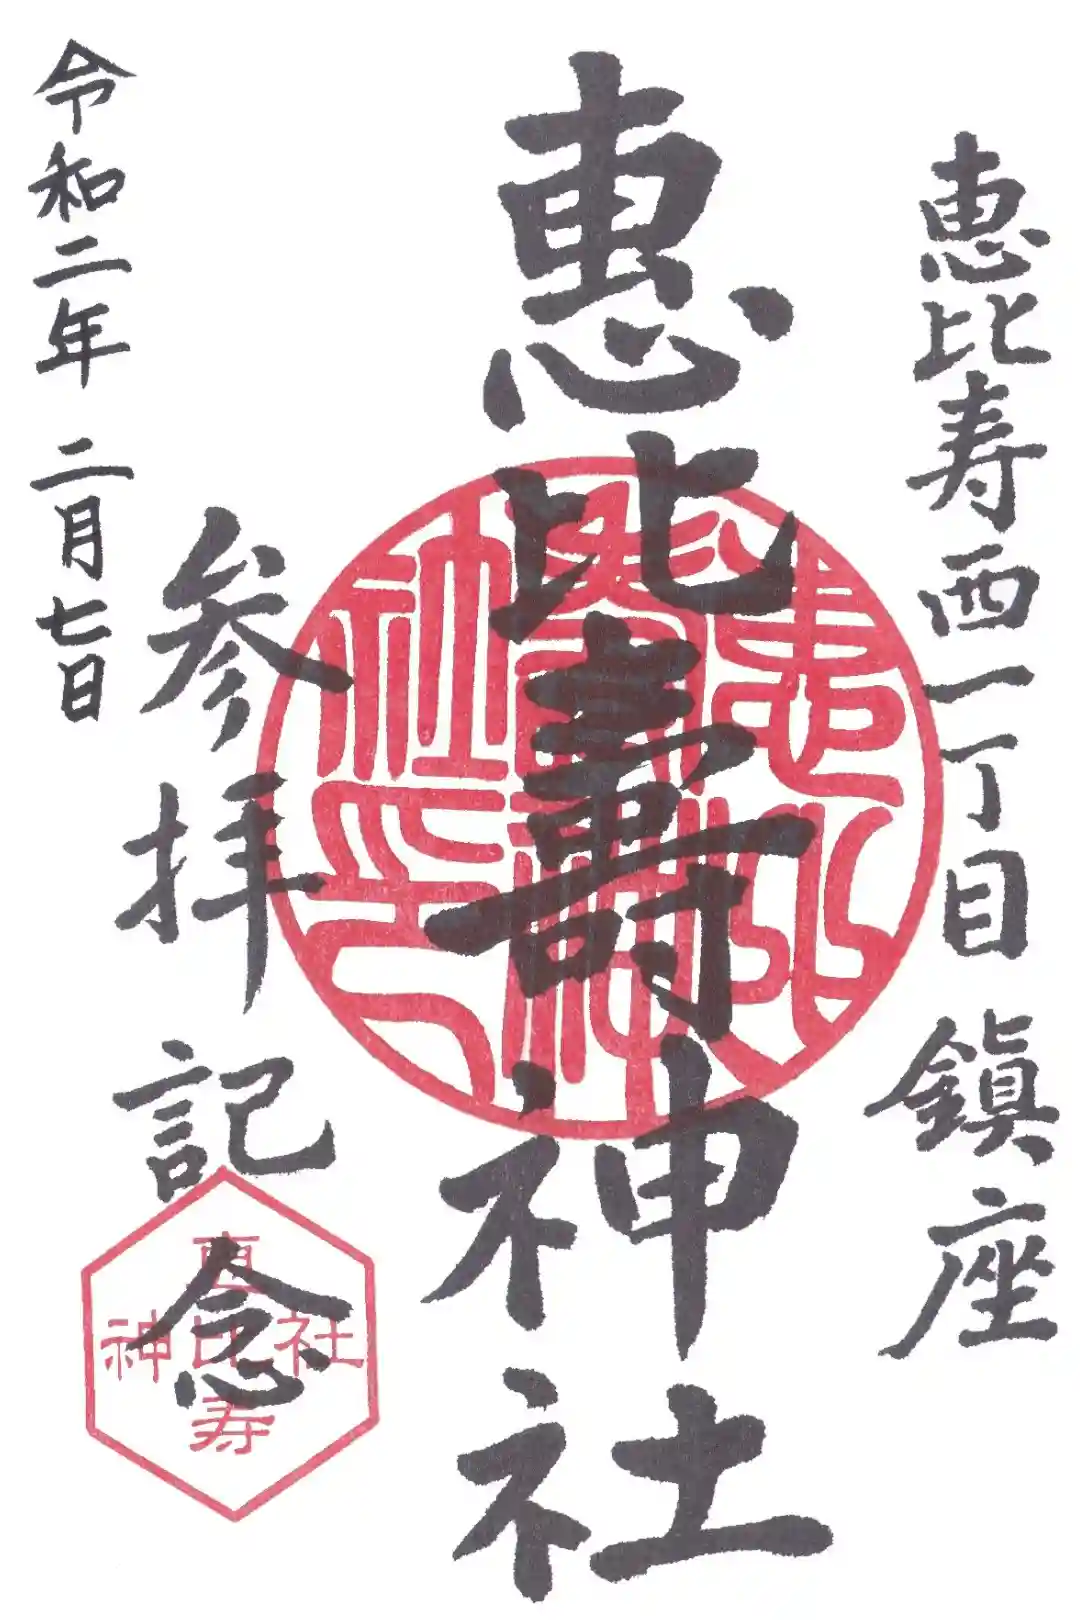 恵比寿西一丁目 鎮座
恵比壽神社
参拝記念
令和二年 二月七日
恵比寿
神社